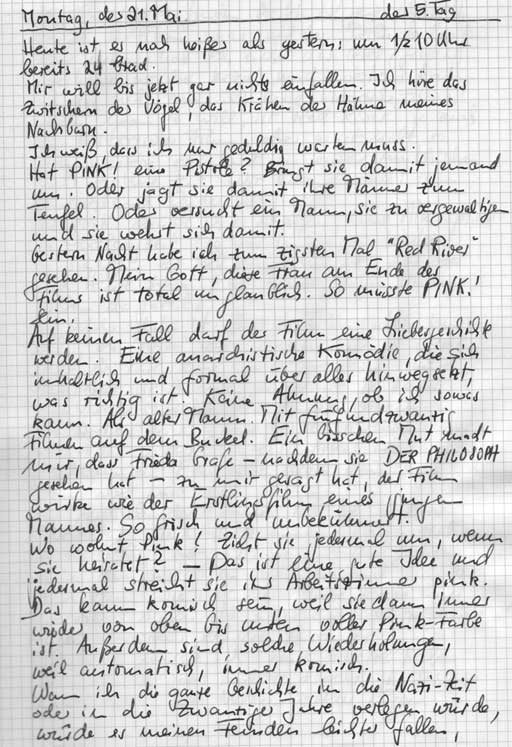 Montag, des 21. Mai des 5. Tag
Heute ist es noch heißer als gestern: um 1/2 10 Uhr
bereits 24 Grad.
Mir will bis jetzt gar nichts einfallen. Ich höre das
Zwitschern der Vögel, das Krähen des Hahns meines
Nachbarn.
Ich weiß, dass ich nur geduldig warten muss.
Hat PINK! eine Pistole? Bringt sie damit jemand
um. Oder jagt sie damit ihre Männer zum
Teufel. Oder versucht ein Mann, sie zu vergewaltigen
und sie wehrt sich damit.
Gestern Nacht habe ich zum zigsten Mal "Red River"
gesehen. Mein Gott, diese Frau am Ende des
Films ist total unglaublich. So müsste PINK!
sein.
Auf keinen Fall darf der Film eine Liebesgeschichte
werden. Eine anarchistische Komödie, die sich
inhaltlich und formal über alles hinwegsetzt,
was richtig ist. Keine Ahnung, ob ich sowas
kann. Als alter Mann. Mit fünfundzwanzig
Filmen auf dem Buckel. Ein bisschen Mut macht
mir, dass Frieda Grafe – nachdem sie DER PHILOSOPH
gesehen hat – zu mir gesagt hat, der Film
wirke wie der Erstlingsfilm eines jungen
Mannes. So frisch und unbekümmert.
Wo wohnt Pink! Zieht sie jedesmal um, wenn
sie heiratet? – Das ist eine gute Idee und
jedesmal streicht sie ihr Arbeitszimmer pink.
Das kann komisch sein, weil sie dann immer
wieder von oben bis unten voller Pink-Farbe
ist. Außerdem sind solche Wiederholungen,
weil automatisch, immer komisch.
Wenn ich die ganze Geschichte in die Nazi-Zeit
oder in die zwanziger Jahre verlegen würde,
würde es meinen Feinden leichter fallen,